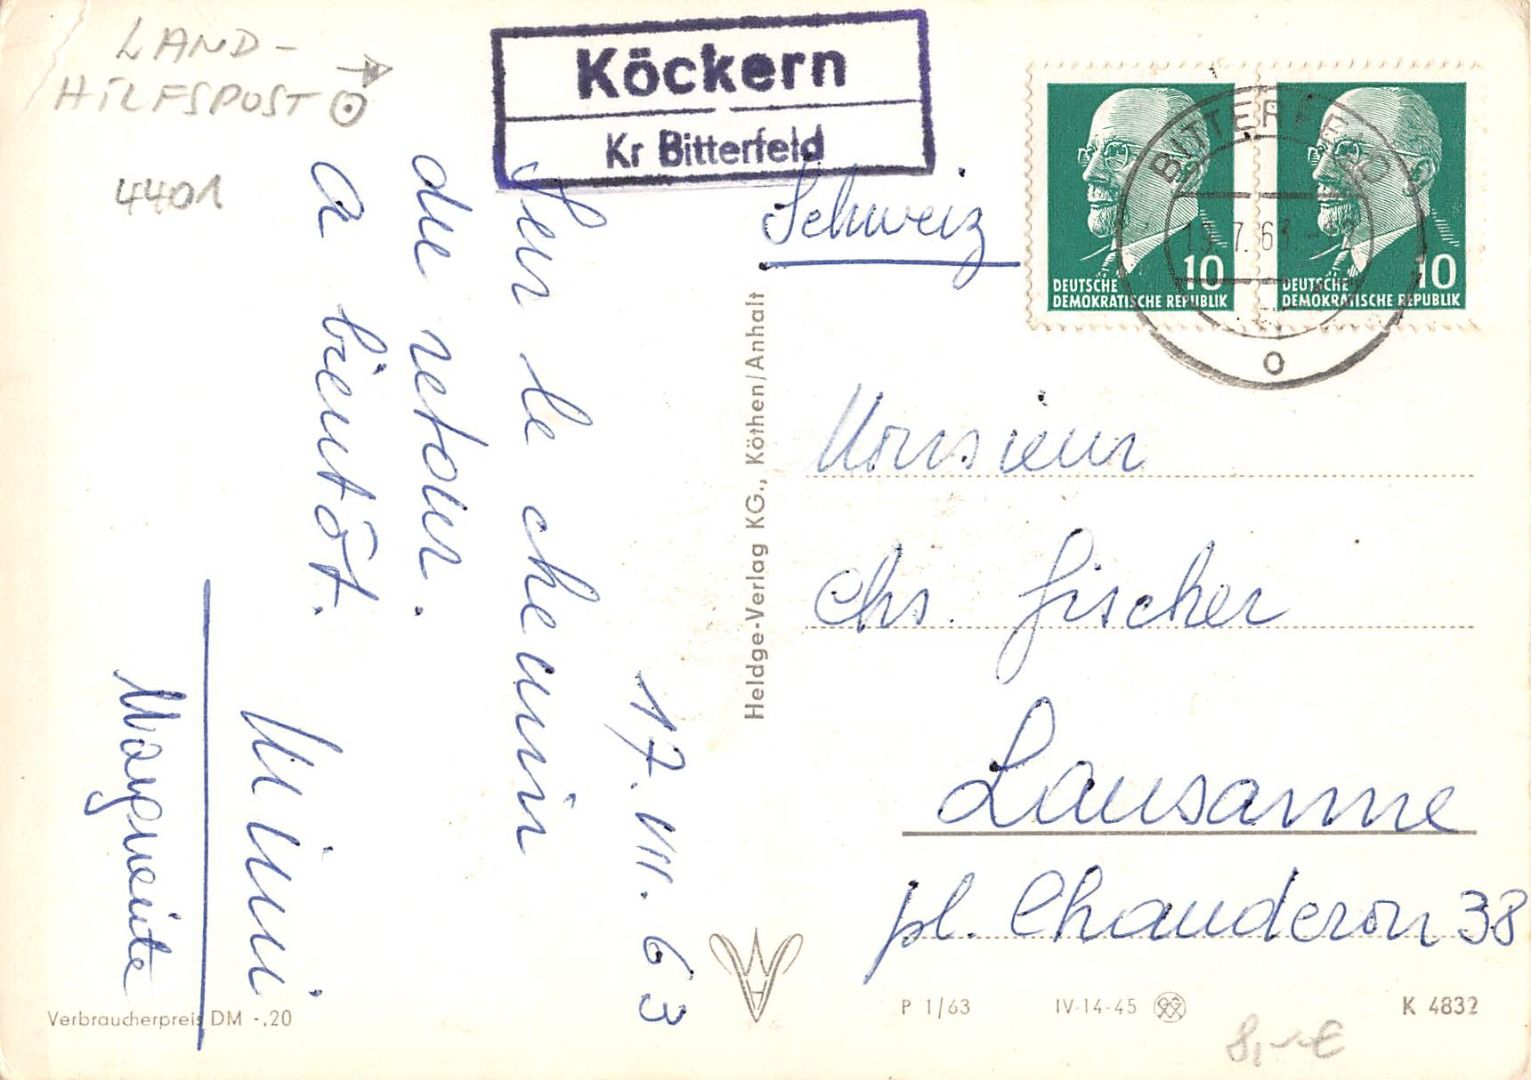 LAND-
HILFSPOST
4401
Köckern
Kr Bitterfeld
17. VII. 63
Sur le chemin
du retour.
A bientôt.
Mimi
Marguerite
Schweiz
DEUTSCHE
DEMOKRATISCHE REPUBLIK
10
DEUTSCHE
DEMOKRATISCHE REPUBLIK
10
BITTERFELD
Monsieur
Chs. Fischer
Lausanne
pl. Chauderon 38
Heldge-Verlag KG., Köthen/Anhalt
Verbraucherpreis DM -.20
P 1/63
IV-14-45
K 4832
8,-€